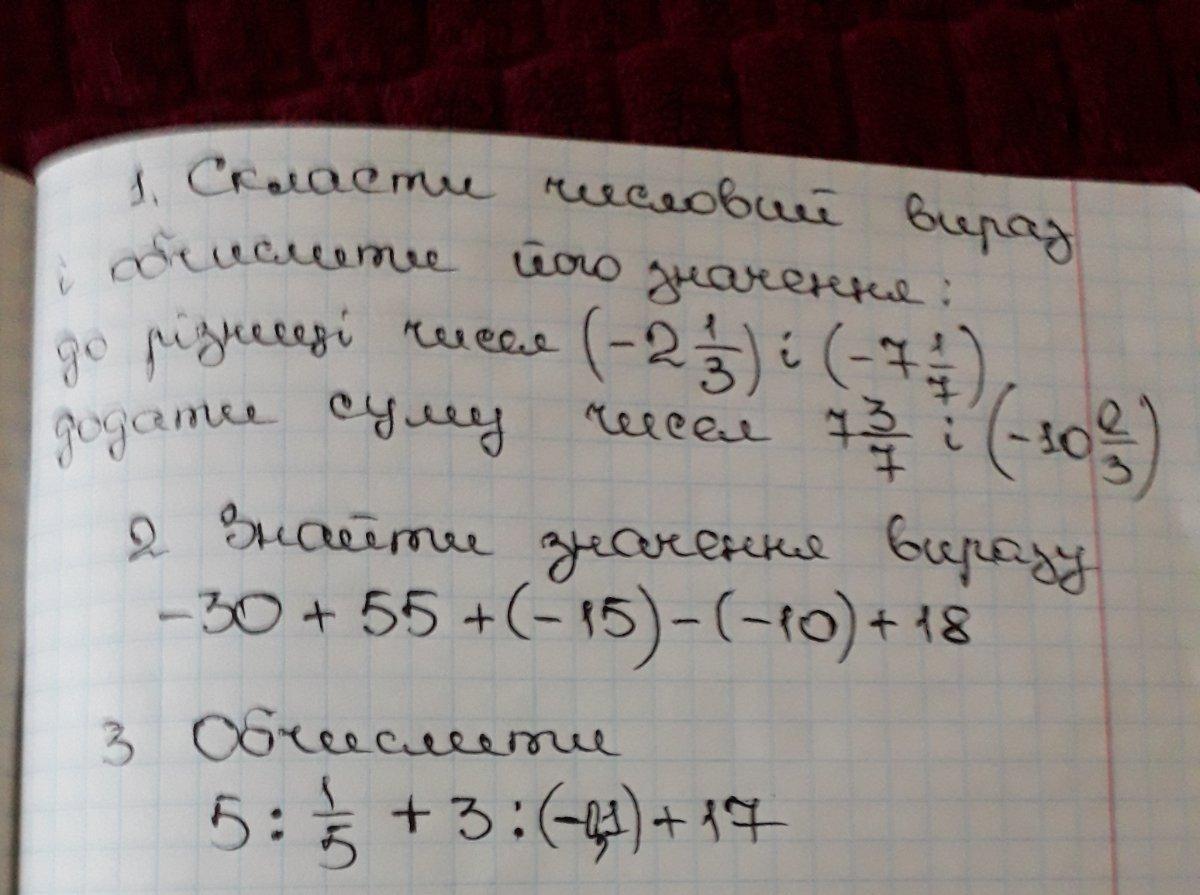 1. Скласти числовий вираз
і обчислити його значення:
до різниці чисел (-2 1/3) і (-7 1/7)
додати суму чисел 7 3/7 і (-10 2/3)
2 Знайти значення виразу
-30 + 55 + (-15) - (-10) + 18
3 Обчислити
5 : 1/5 + 3 : (-0,1) + 17